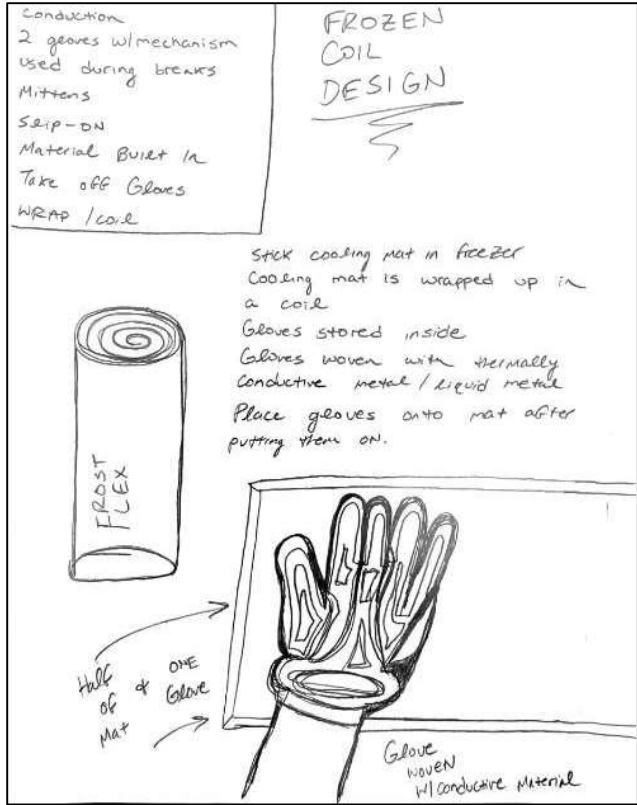 Conduction
2 gloves w/mechanism
used during breaks
Mittens
Slip-ON
Material Built In
Take off Gloves
WRAP / coil
FROZEN
COIL
DESIGN
Stick cooling mat in freezer
Cooling mat is wrapped up in
a coil
Gloves stored inside
Gloves woven with thermally
conductive metal / liquid metal
Place gloves onto mat after
putting them on.
FROST
FLEX
Half & ONE
of Glove
Mat
Glove
WOVEN
W/Conductive Material